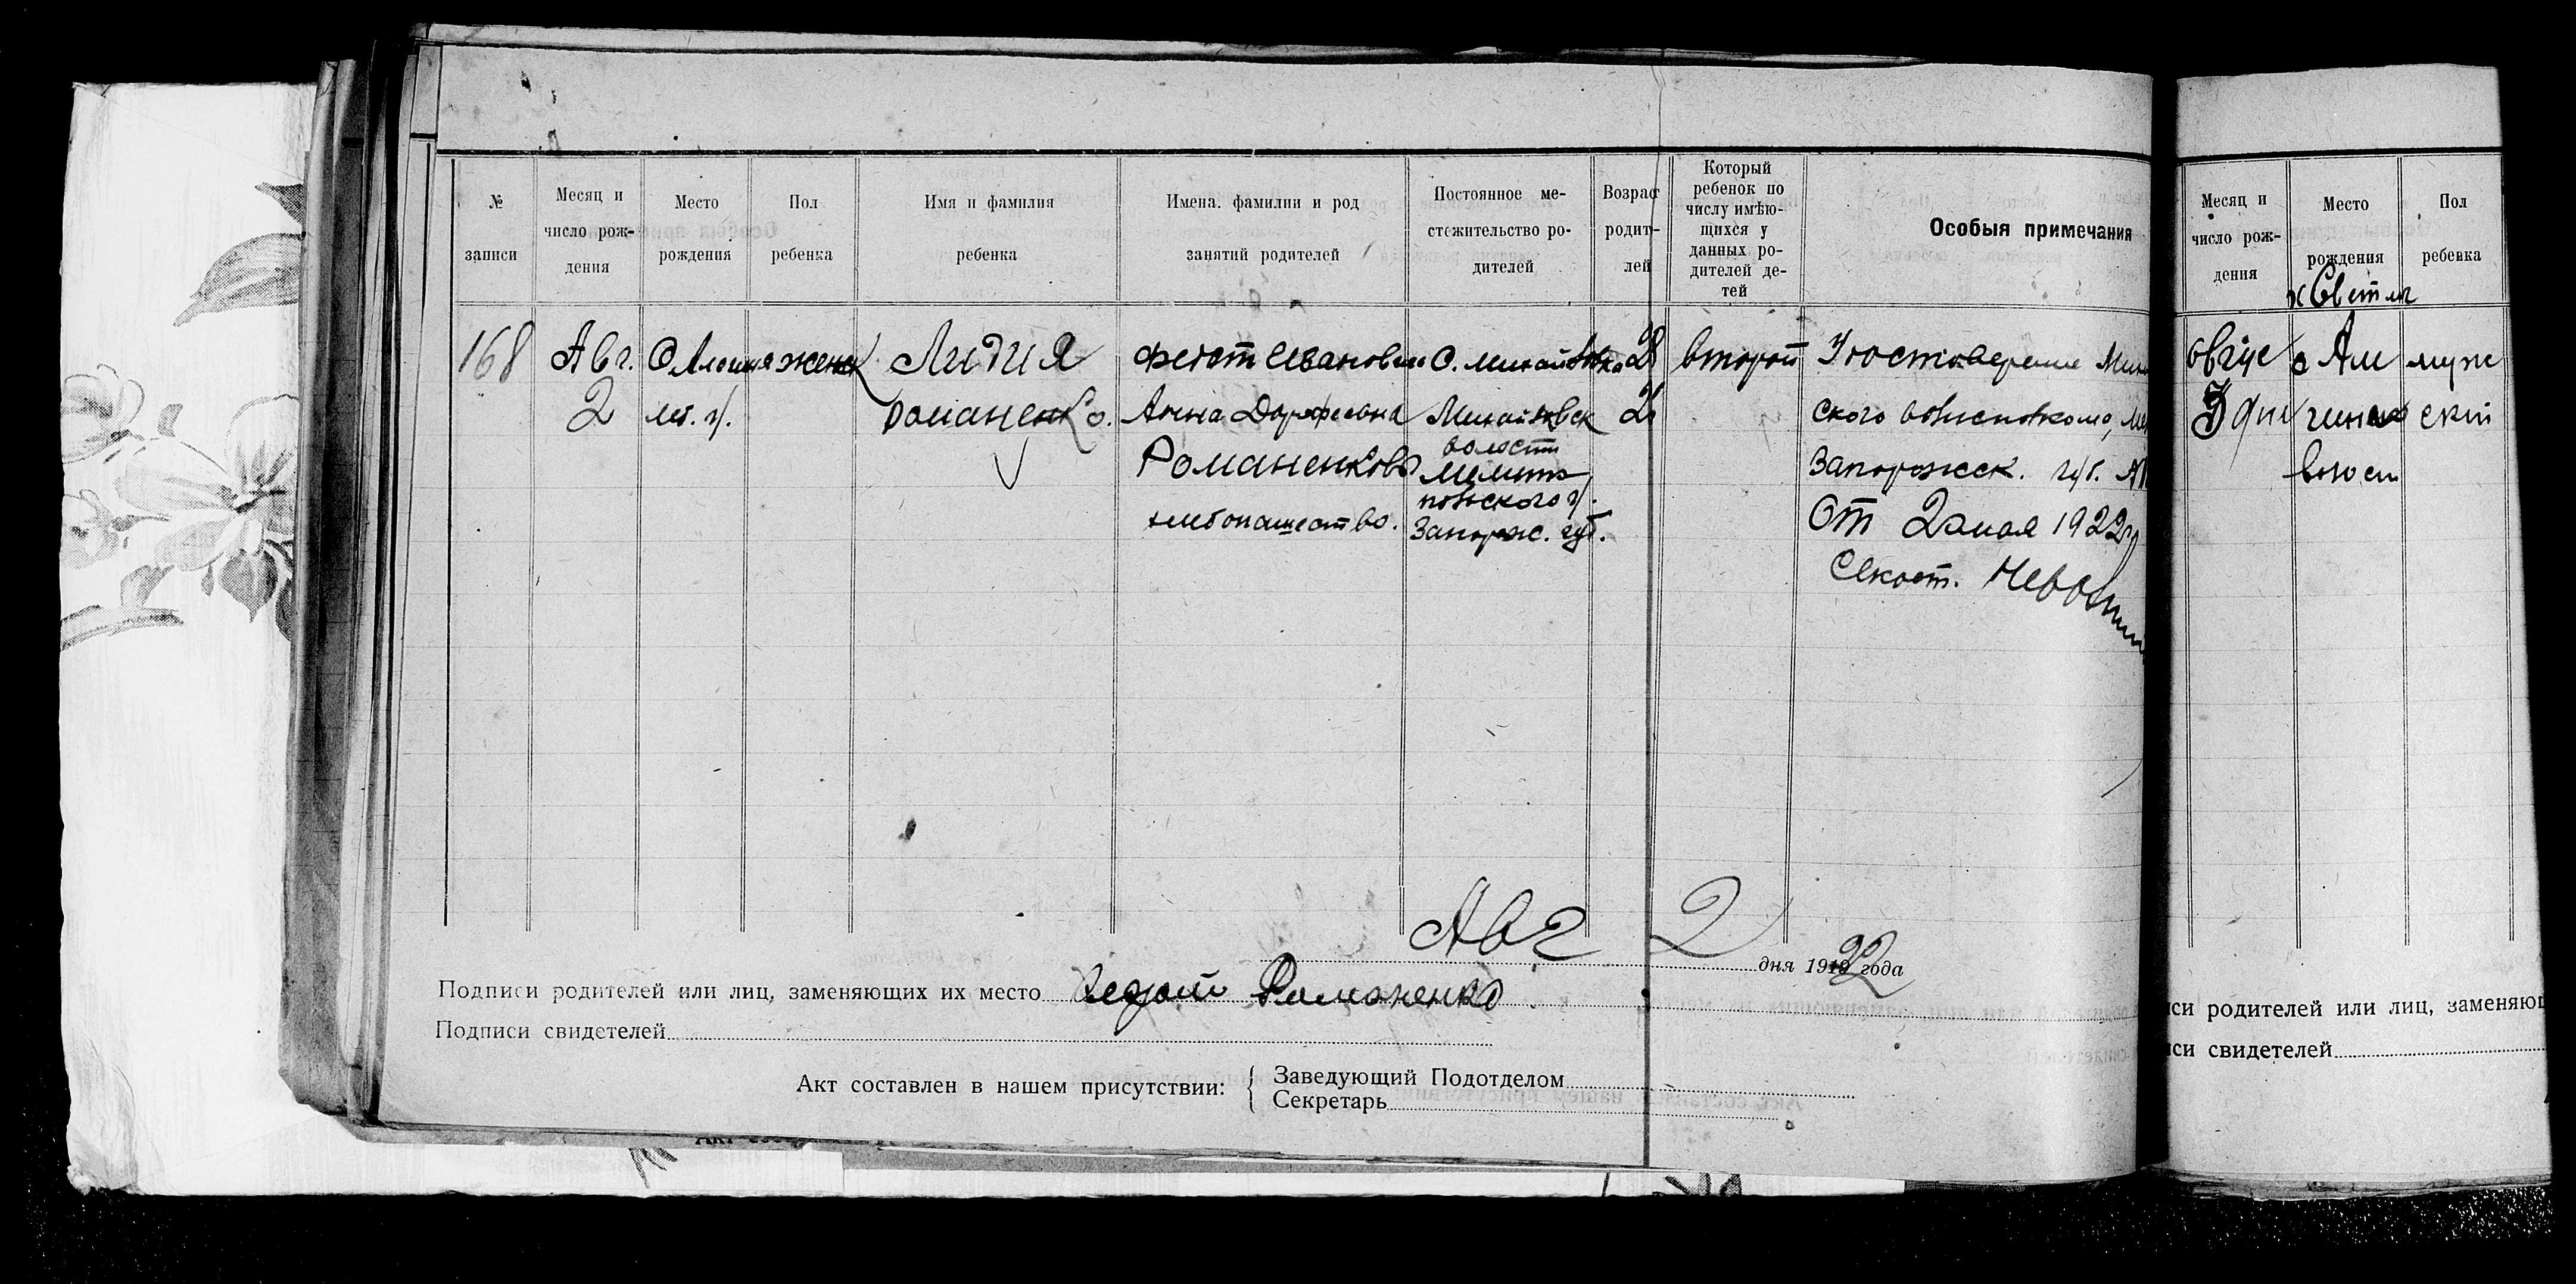 №
записи
Месяц и
число рож-
дения
Место
рождения
Пол
ребенка
Имя и фамилия
ребенка
Имена, фамилии и род
занятий родителей
Постоянное ме-
стожительство ро-
дителей
Возраст
родит-
лей
Который
ребенок по
числу имѣю-
щихся у
данных ро-
дителей де-
тей
Особыя примечания
168
Авг.
2
женск
Лидия
Романенко.
Феогст Иванович
Анна Дорофеевна
Романенково
хлебопашество.
С. Михайловка
Михайловск
волости
Мелито
польского у.
Запорож. губ.
28
второй
Удостоверение
ского волисполкома,
Запорожск. губ. №
От 20 мая 1922 г
Авг 2 дня 1922 года
Подписи родителей или лиц, заменяющих их место Романенко
Подписи свидетелей
Акт составлен в нашем присутствии:
Заведующий Подотделом
Секретарь
Месяц и
число рож-
дения
Место
рождения
Пол
ребенка
муж
ский
иси родителей или лиц, заменяющ
иси свидетелей